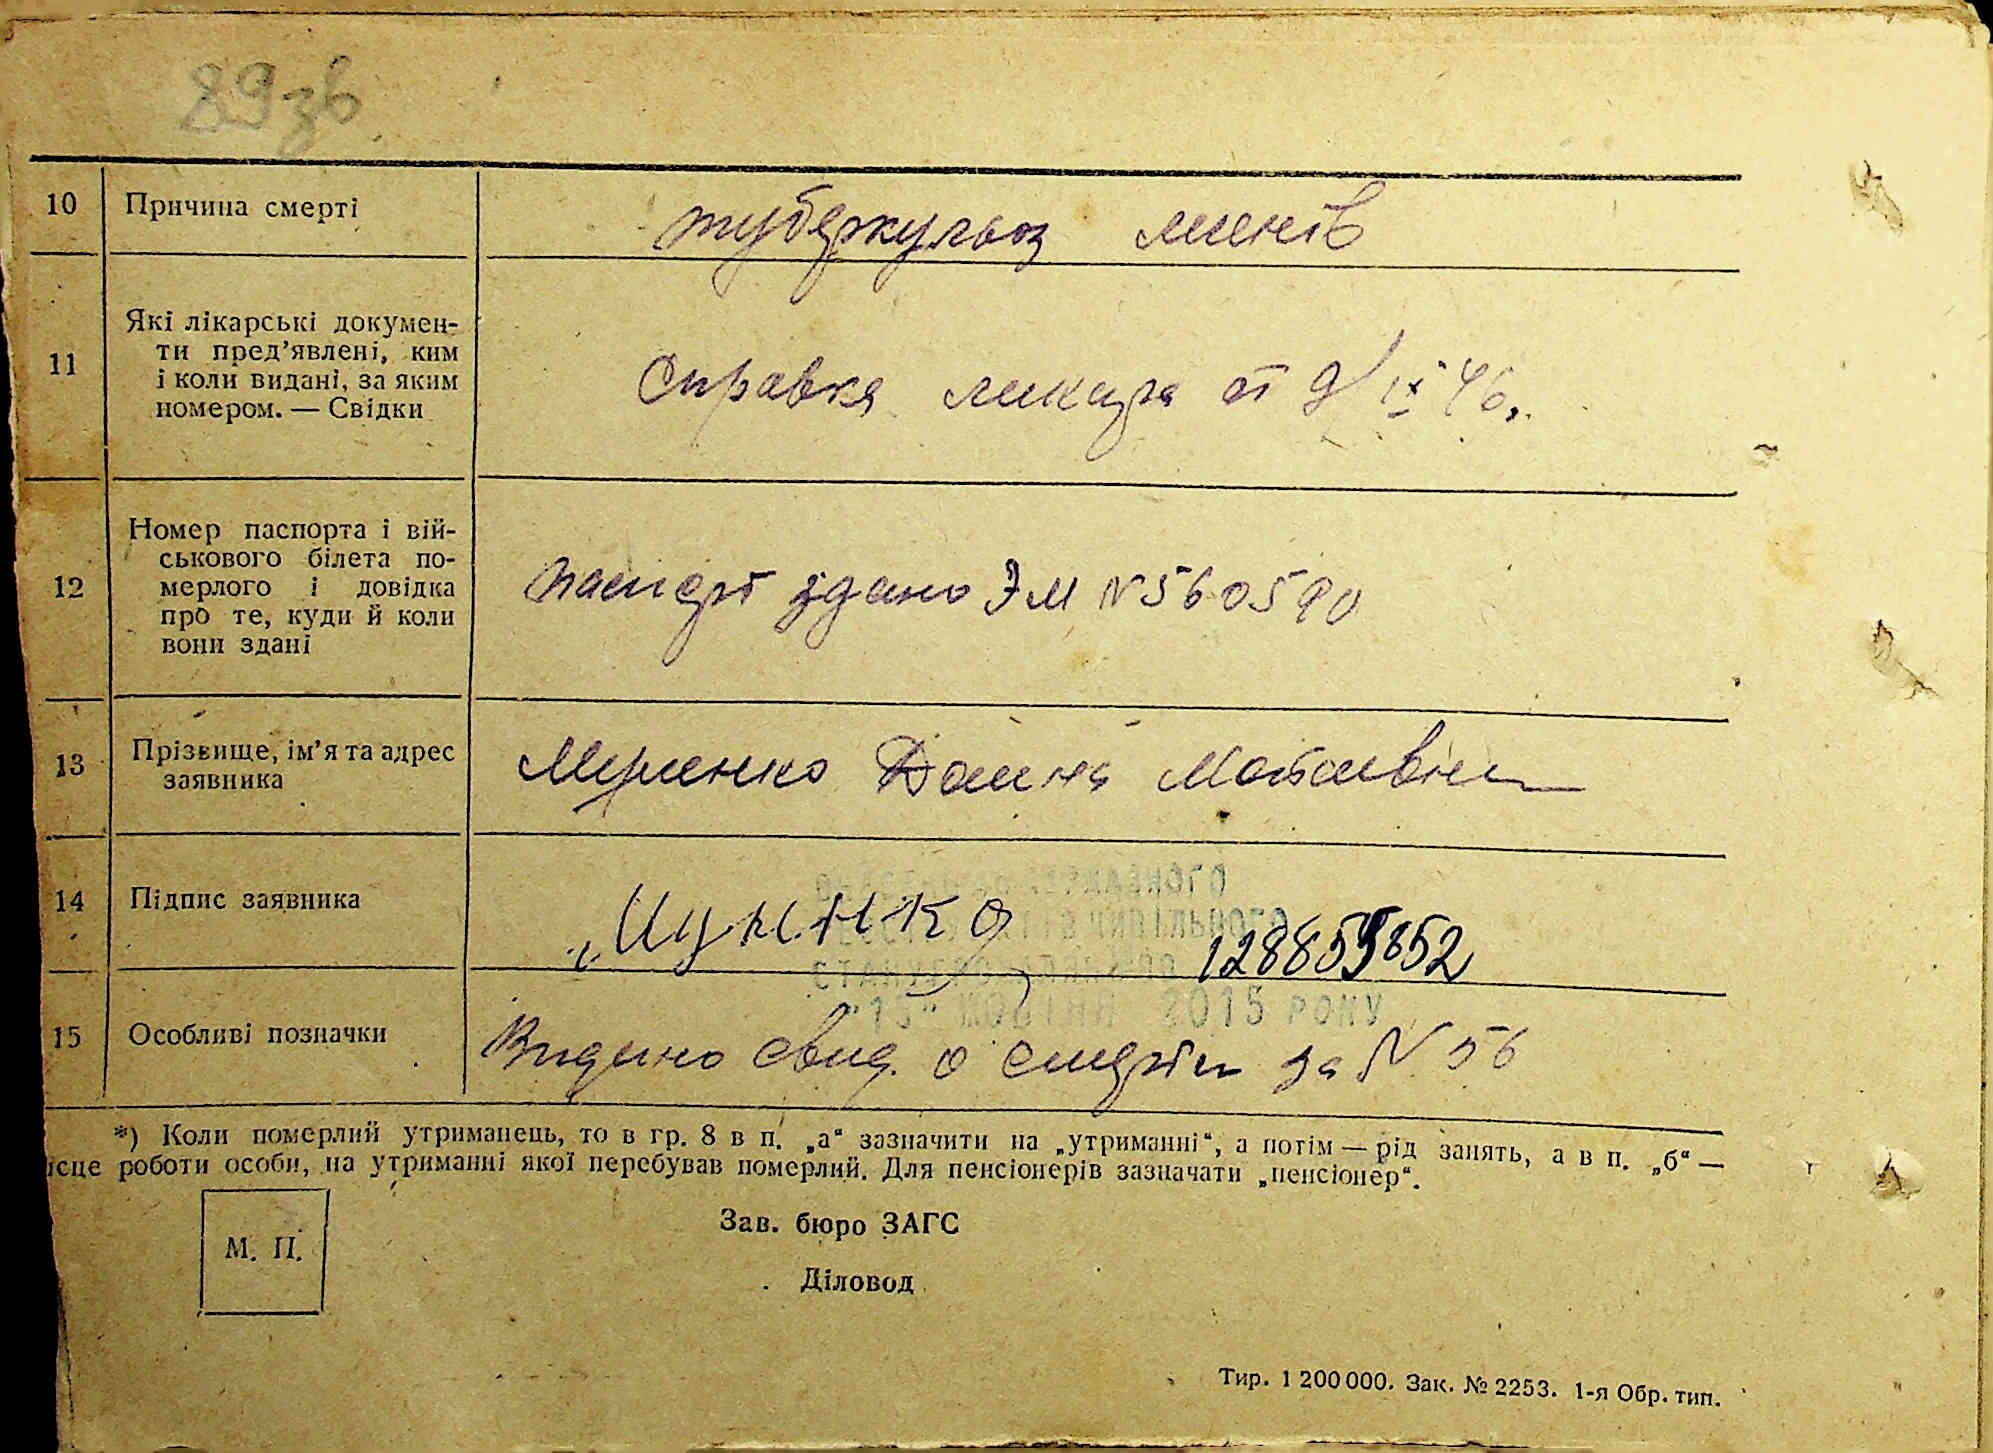 89зв
10 Причина смерті туберкульоз легенів
11 Які лікарські докумен-
ти пред'явлені, ким
і коли видані, за яким
номером. — Свідки
Справка ликаря от 9/IX 46.
12 Номер паспорта і вій-
ськового білета по-
мерлого і довідка
про те, куди й коли
вони здані
паспорт здано ЭМ N 560590
13 Прізвище, ім'я та адрес
заявника
14 Підпис заявника
128859852
СТАНУ
2015 РОКУ
15 Особливі позначки Видано свид. о смерти за N 56
*) Коли померлий утриманець, то в гр. 8 в п. „а“ зазначити на „утриманні“, а потім — рід занять, а в п. „б“ —
ісце роботи особи, на утриманні якої перебував померлий. Для пенсіонерів зазначати „пенсіонер“.
М. П.
Зав. бюро ЗАГС
Діловод
Тир. 1 200 000. Зак. № 2253. 1-я Обр. тип.